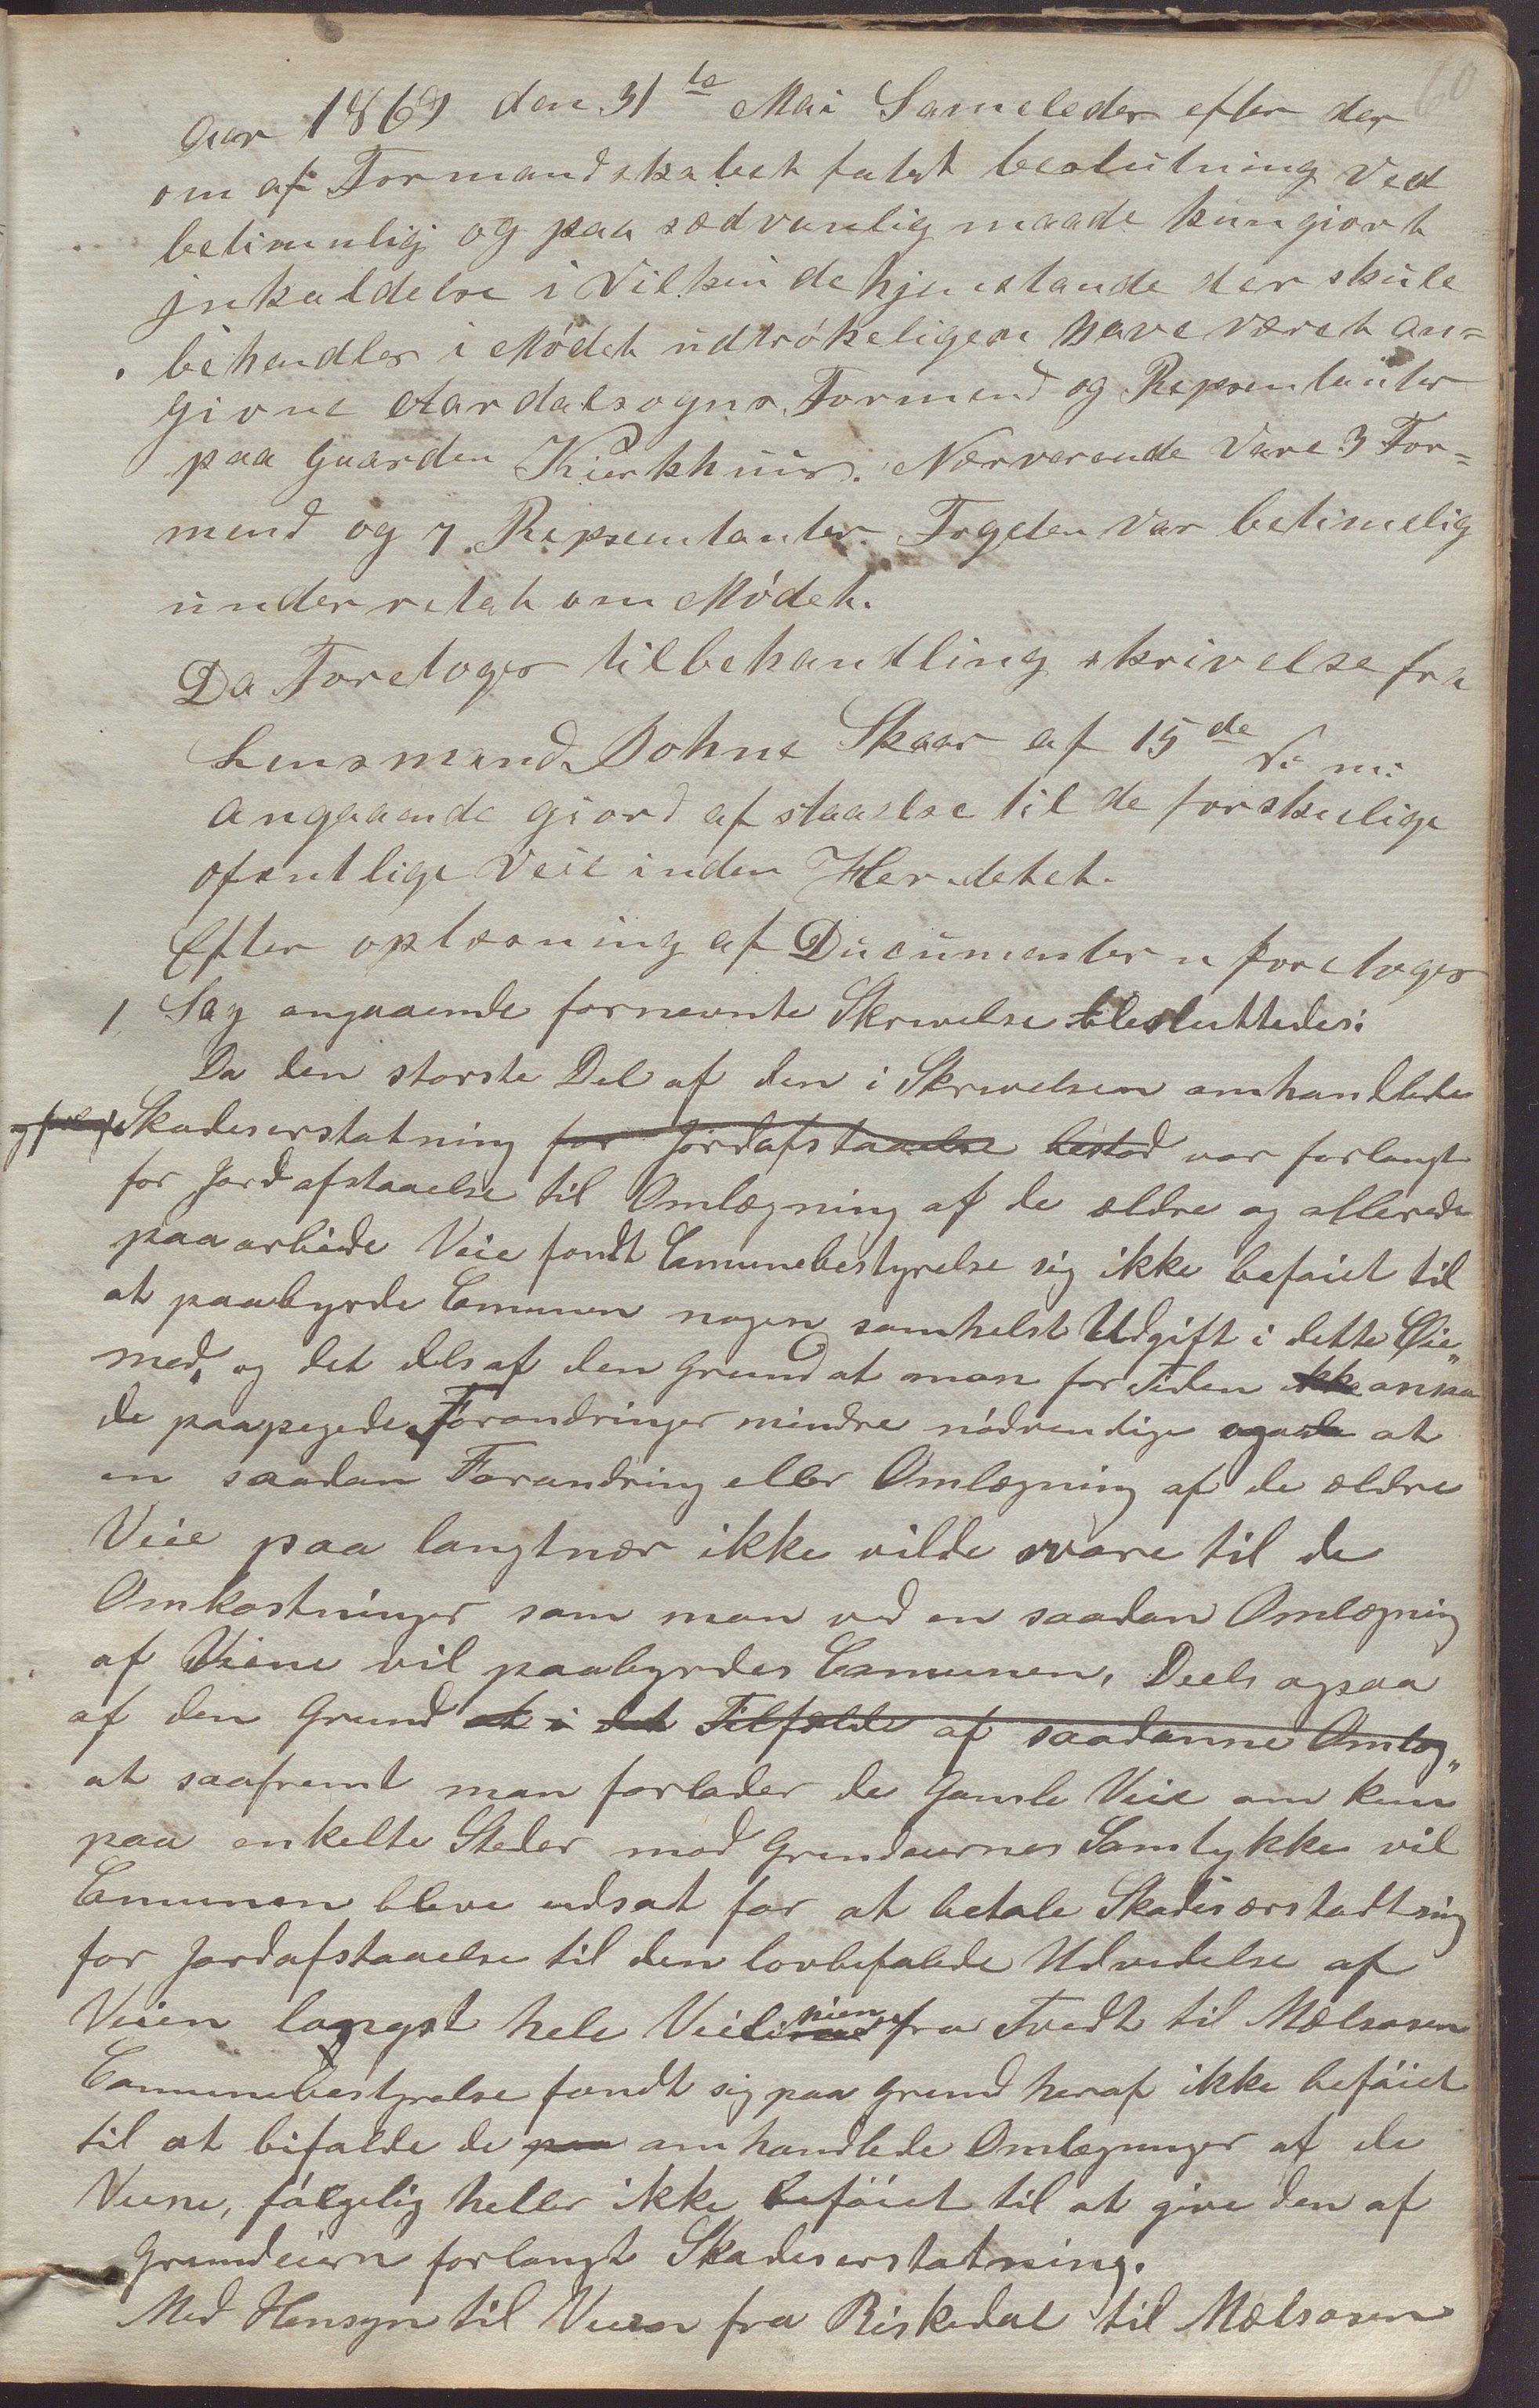 60
Aar 1869 den 31te Mai Sameledes efter der
om af Formandskabet fatet beslutning ved
betimelig og paa sædvanlig maade kungiort
jnkaldelse i Vilken de hjenstande der skule
behandles i Mødet udtrökeligen have været an=
givne Aardalsogns Formend og Repsentanter
paa Gaarden Kirkhuus. Nærverende Vare 3 For=
mend og 7 Repsentanter Fogden var betimelig
underretet om Mödet.
Da Foretoges tilbehandling skrivelse fra
Lensmand Dohne Skaar af 15de d: m:
angaaende giord afstaaelse til de forskelige
ofentlige Veie inden Herredetet.
Efter oplesning af Ducumenterne foretoges
1 Sag angaaende fornevnte Skrivelse besluttedes:
Da den største Del af den i Skrivelsen omhandlede
Skadeserstatning for Jordafstaaelse bestod var forlangt
for Jordafstaaelse til Omlægning af de ældre og allerede
paaarbeide Veie fandt Comunebestyrelse sig ikke beføiet til
at paabyrde Comunen nogen somhelst Udgift i dette Øie„
med, og det dels af den Grund at man for Tiden ikke ansaa
de paapegede Forandringer mindre nödvendige ogsaa at
en saadan Forandring eller Omlægning af de ældre
Veie paa langtnær ikke vilde svare til de
Omkostninger som man ved en saadan Omlægning
af Veiene vil paabyrdes Comunen, Deels ogsaa
af den Grund at i det Tilfælde af saadanne Omlæg„
at saafremt man forlader de Gamle Veie om kun
paa enkelte Steder med Grundeiernes Samtykke vil
Comunen bleve udsat for at betale Skadesærstadtning
for Jordafstaaelse til den lovbefalede Udvidelse af
Veien langst hele Veilinien fra Tvedt til Mælsosen
Comunebestyrelse fandt sig paa Grund heraf ikke beføiet
til at bifalde de paa omhandlede Omlægninger af de
Veiene, følgelig heller ikke beføiet til at give den af
Grundeiern forlangt Skadeserstatning.
Med Hensyn til Veien fra Riskedal til Mælsosen